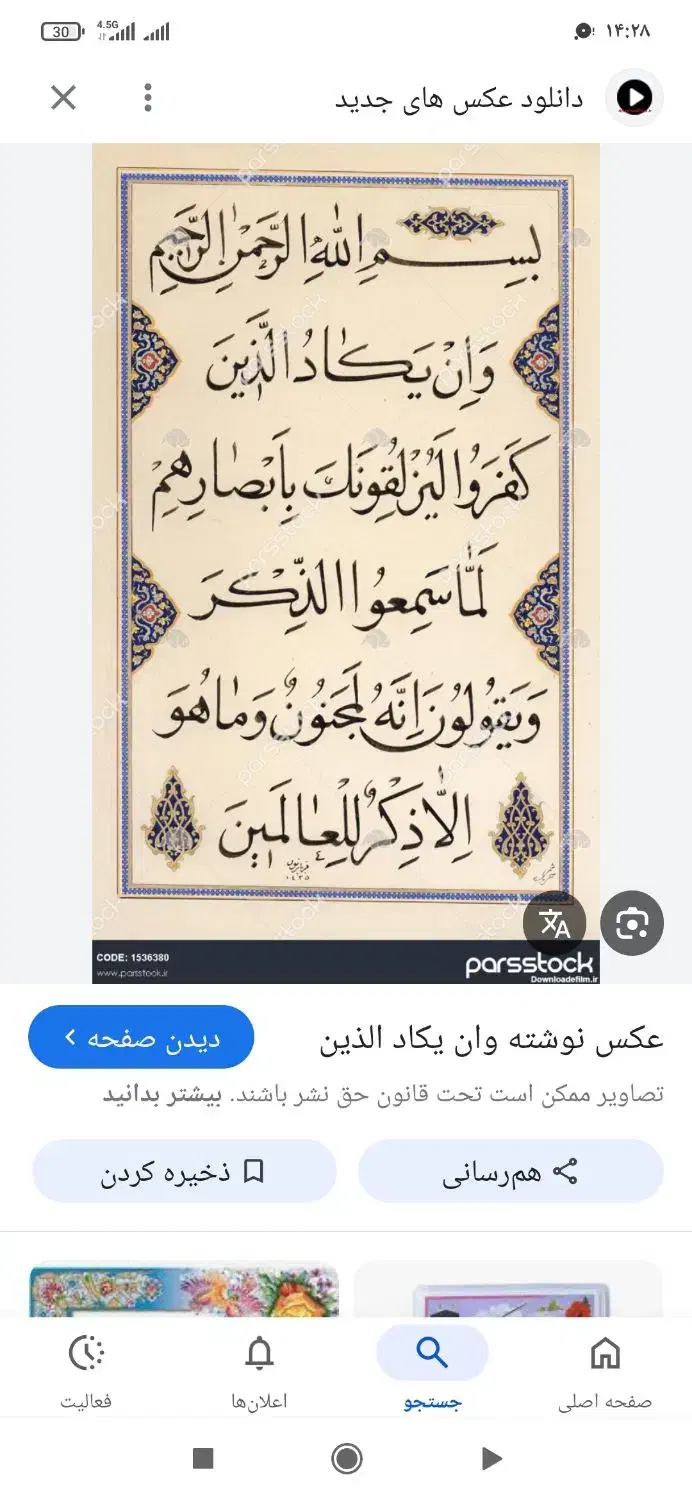 ۱۴:۲۸
4.5G
30
دانلود عکس های جدید
بِسمِ اللهِ الرَّحمنِ الرَّحیمِ
وَاِنْ یَکادُ الَّذینَ
کَفَرَوُا لَیُزْلِقُونَكَ بِاَبْصارِهِمْ
لَمّا سَمِعوُا الذِّکرَ
وَیَقُولُونَ اِنَّهُ لَمَجْنُونٌ وَما هُوَ
اِلاّ ذِکْرٌ لِلْعالَمینَ
CODE: 1536380
www.parsstock.ir
parsstock
Downloadefilm.ir
عکس نوشته وان یکاد الذین
دیدن صفحه
تصاویر ممکن است تحت قانون حق نشر باشند. بیشتر بدانید
هم‌رسانی
ذخیره کردن
صفحه اصلی
جستجو
اعلان‌ها
فعالیت